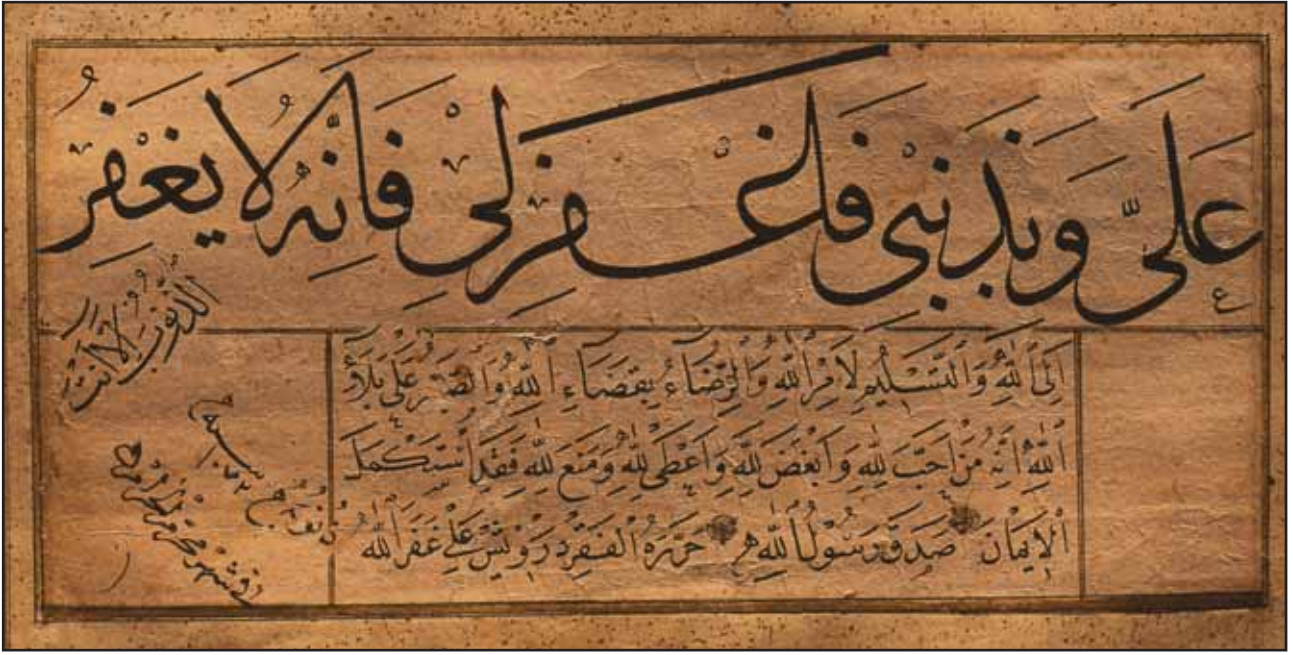 عَلَيَّ وَبِذَنْبِي فَاغْفِرْ لِي فَاِنَّهُ لَا يَغْفِرُ
الذُّنُوبَ اِلَّا اَنْتَ
اِلَى اللّٰهِ وَالتَّسْلِيمِ لِاَمْرِ اللّٰهِ وَالرِّضَاءُ بِقَضَاءِ اللّٰهِ وَالصَّبْرُ عَلَى بَلَاءِ
اللّٰهِ اِنَّهُ مَنْ اَحَبَّ لِلّٰهِ وَاَبْغَضَ لِلّٰهِ وَاَعْطَى لِلّٰهِ وَمَنَعَ لِلّٰهِ فَقَدِ اسْتَكْمَلَ
الْاِيمَانَ صَدَقَ رَسُولُ اللّٰهِ حَرَّرَهُ الْفَقِيرُ دَرْوِيشْ عَلِي غَفَرَ اللّٰهُ
ذنوبه